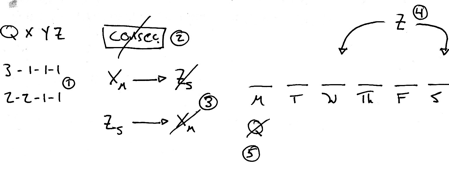 Q X Y Z
3-1-1-1
2-2-1-1 ①
consec. ②
X_M → Z_S
③
Z_S → X_M
Z ④
M T W Th F S
Q
⑤